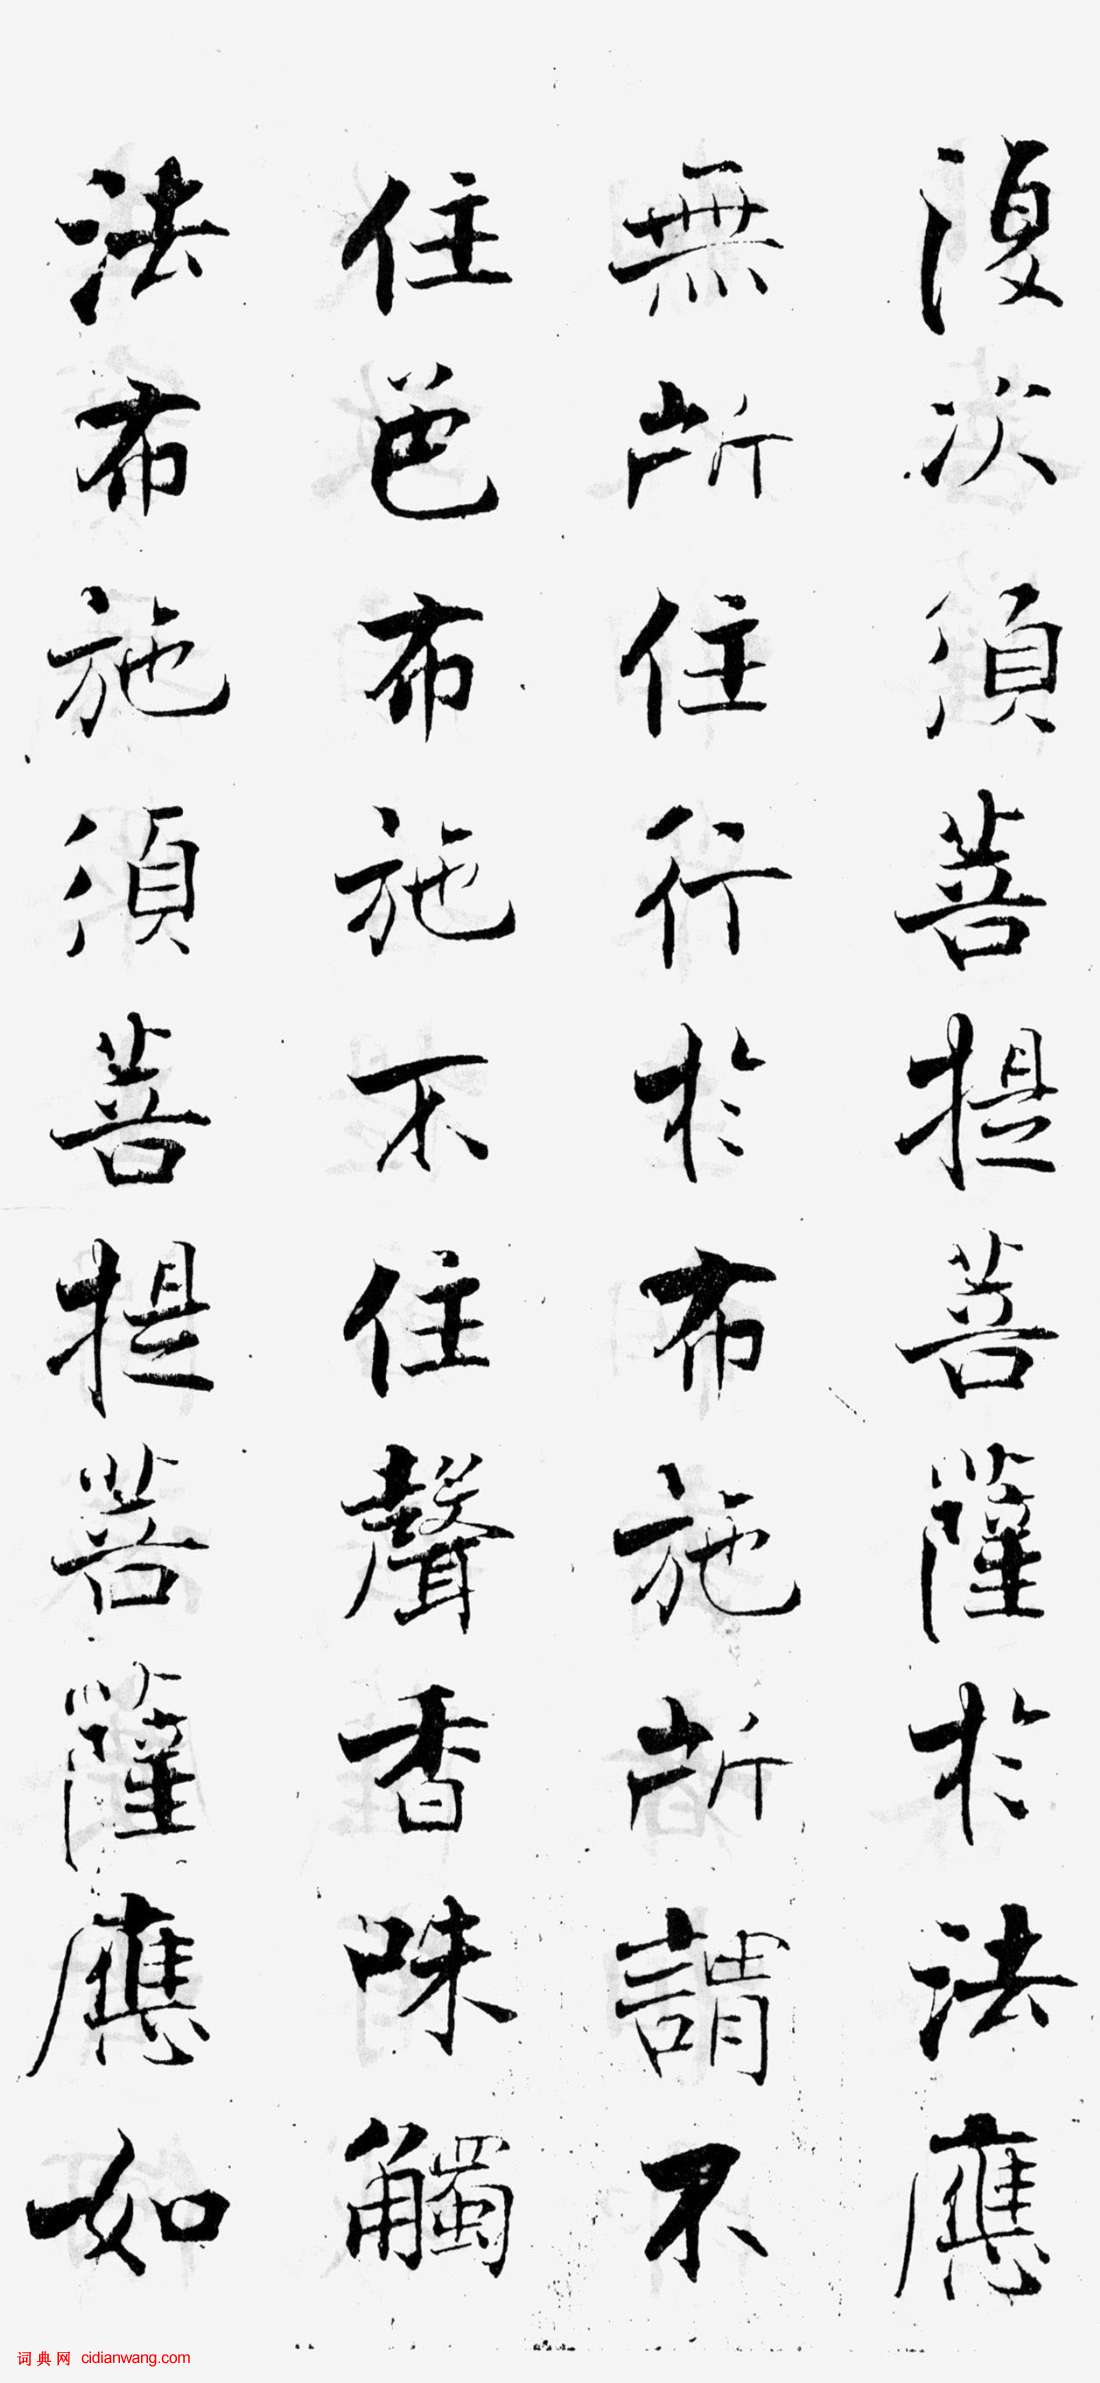 復次須菩提菩薩於法應
無所住行於布施所謂不
住色布施不住聲香味觸
法布施須菩提菩薩應如
词典网 cidianwang.com